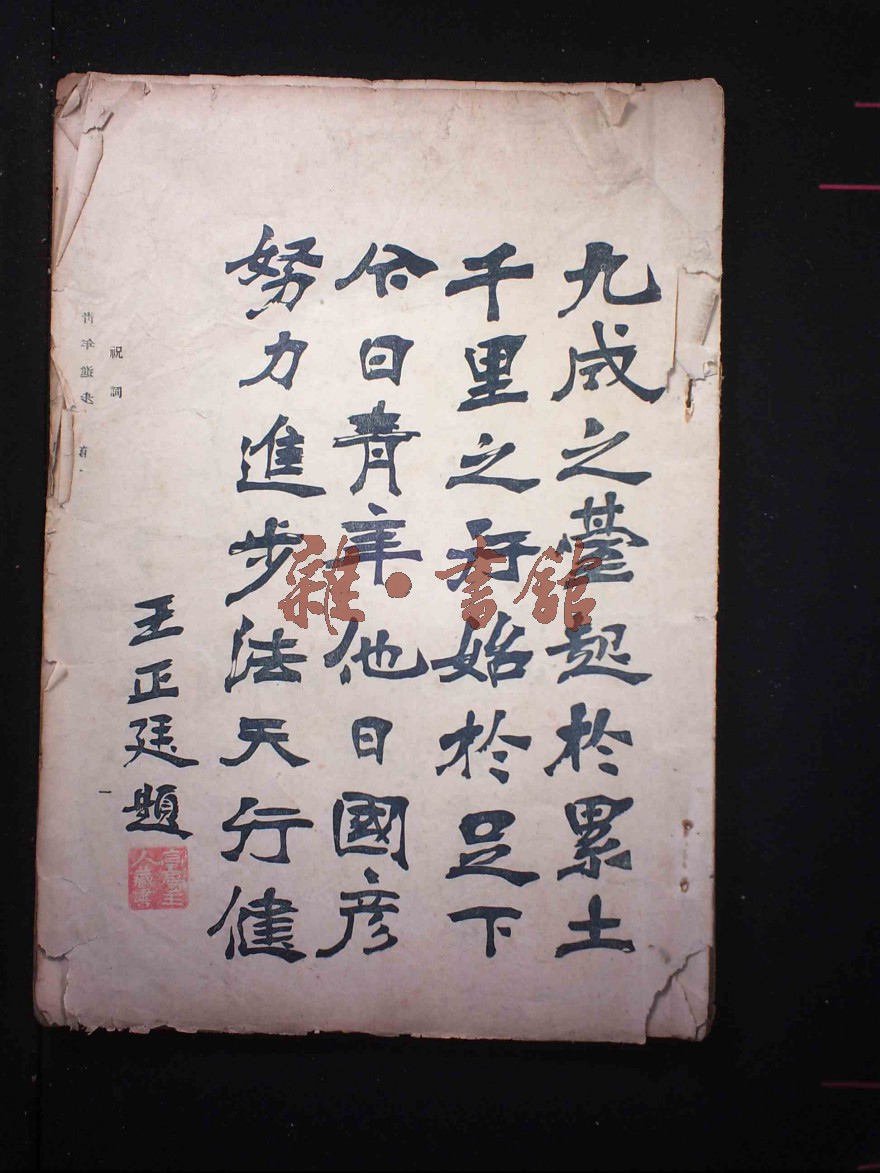 九成之臺起於累土
千里之行始於足下
今日青年他日國彥
努力進步法天行健
王正廷題
祝詞
一
青年進步
雜·書館